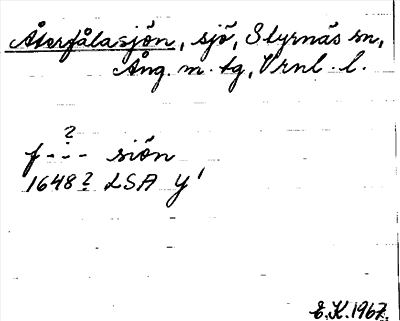 Återfålasjön, sjö, Styrnäs sn,
Ång. m. tg, Vrnl. l.
?
f--- siön
1648? LSA Y'
E.K. 1967.